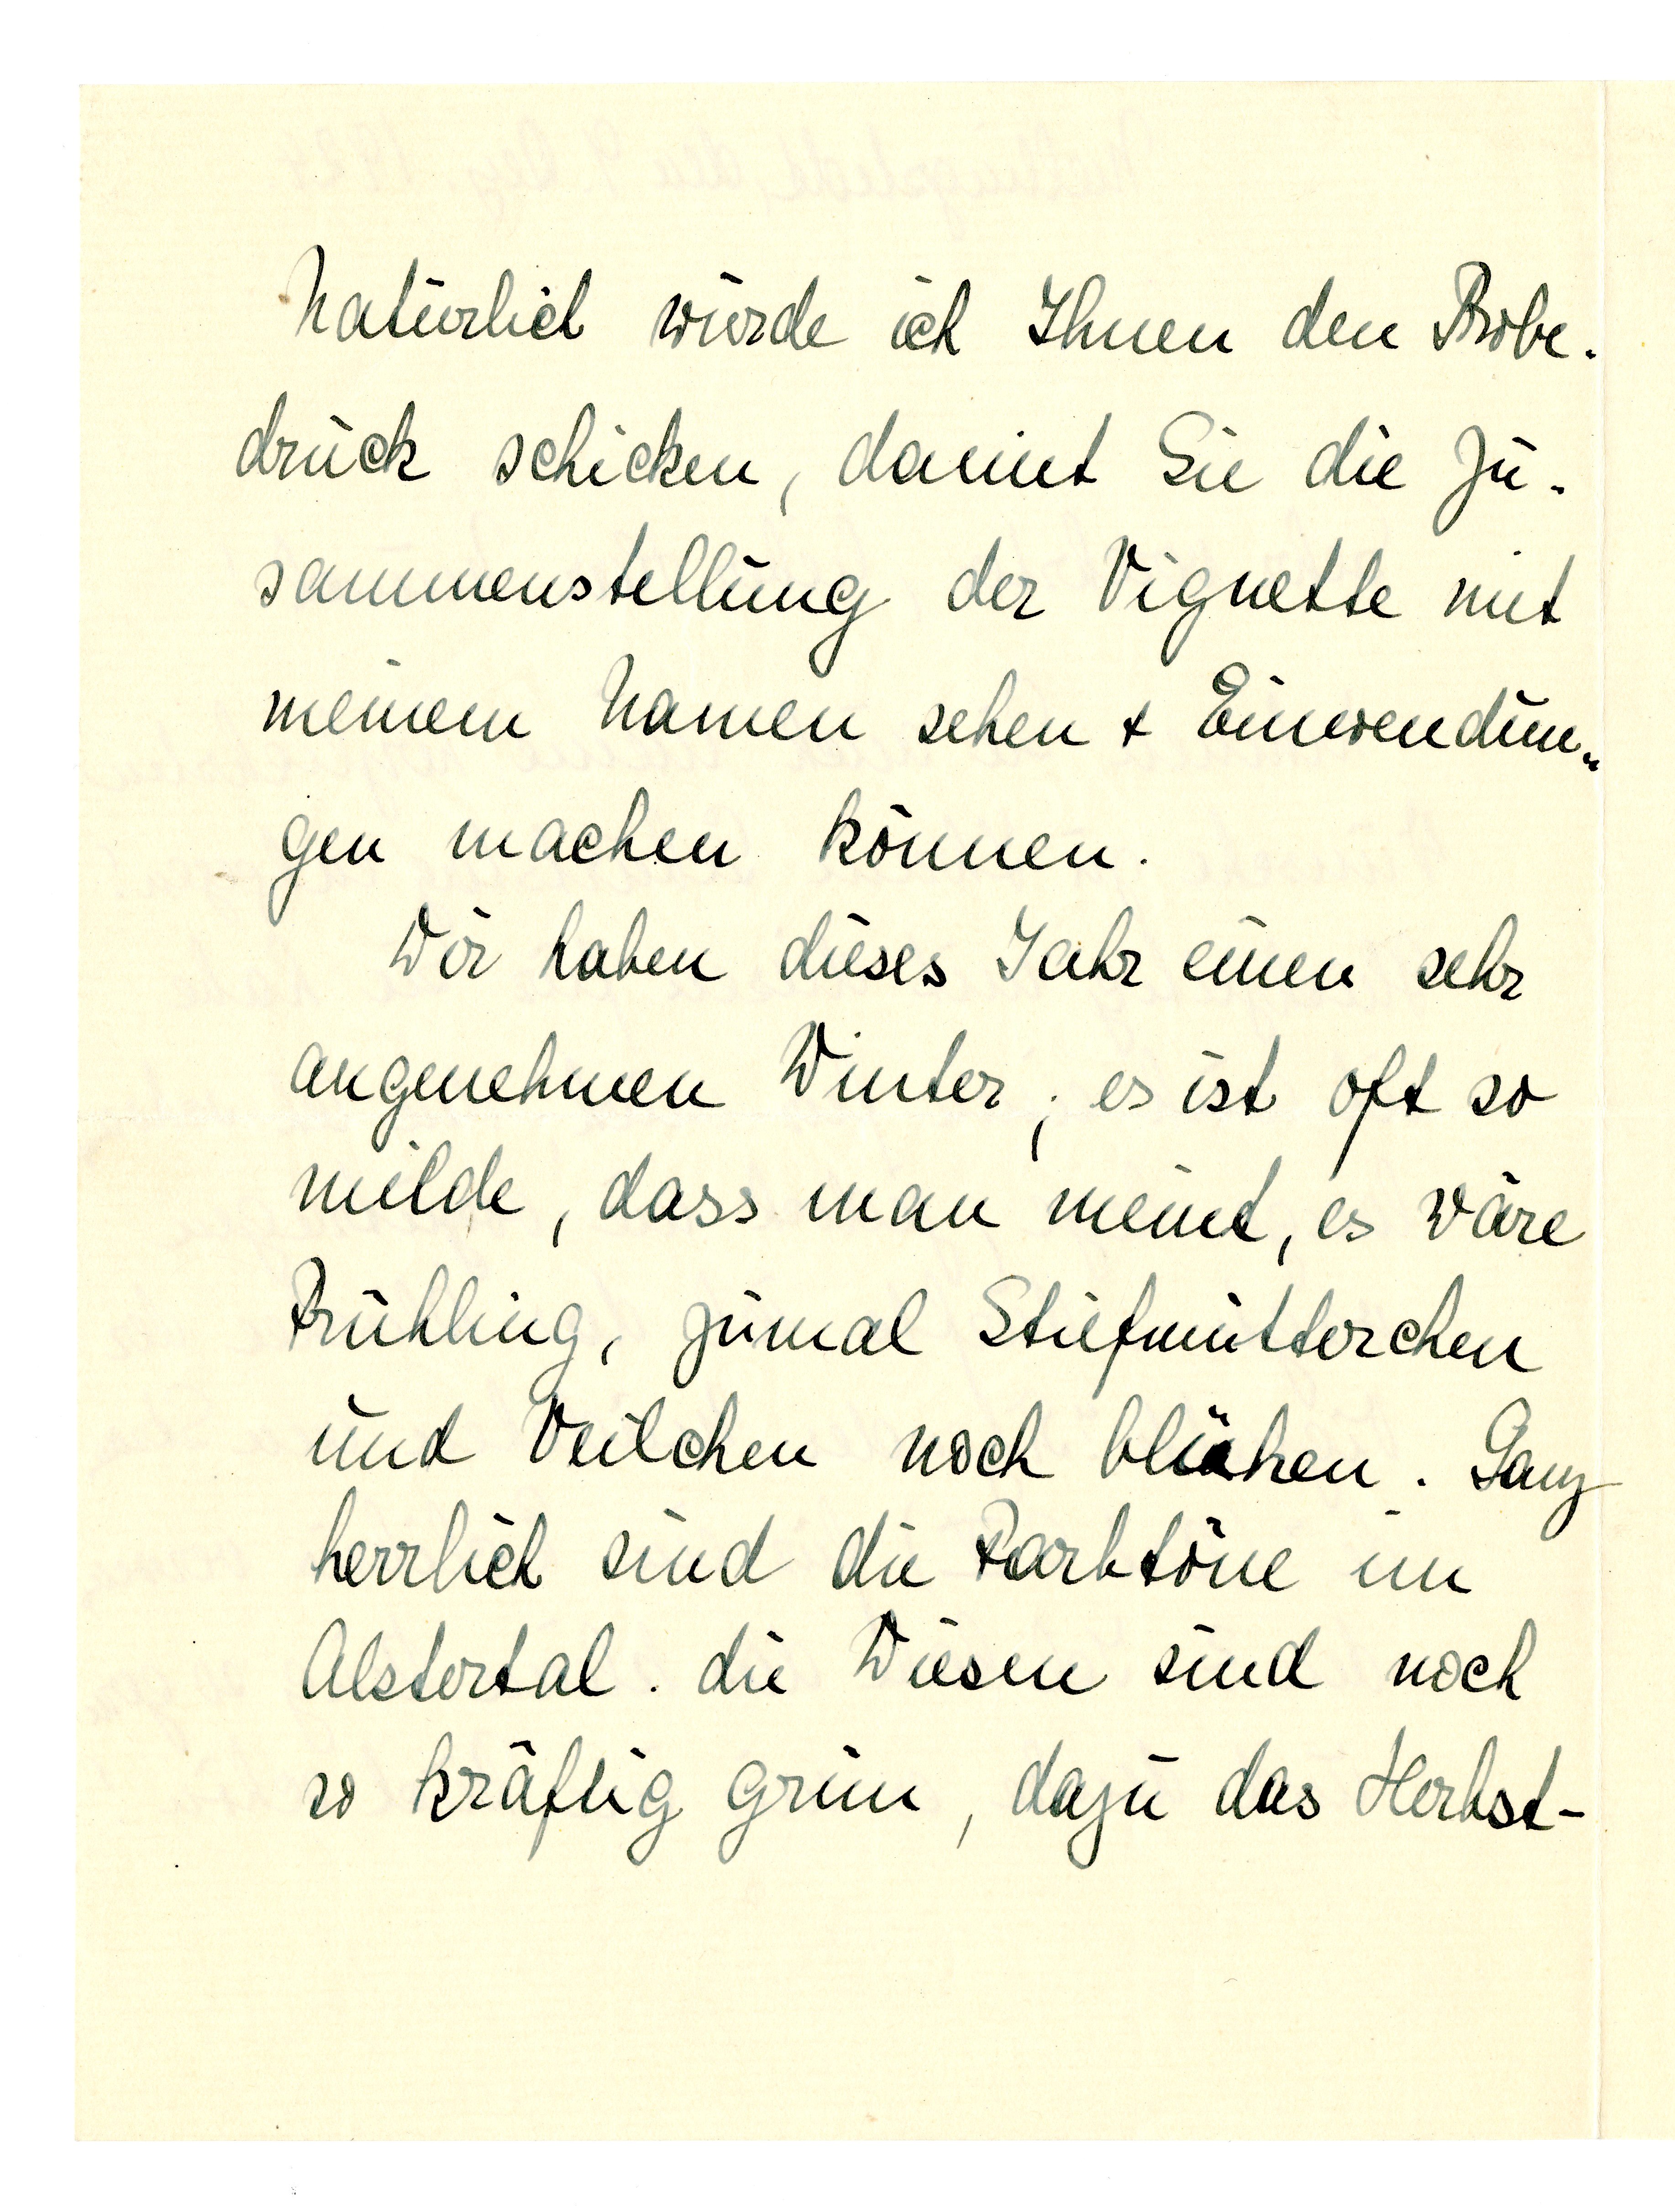 Natürlich würde ich Ihnen den Probe-
druck schicken, damit Sie die Zu-
sammenstellung der Vignette mit
meinem Namen sehen + Einwendun-
gen machen können.
Wir haben dieses Jahr einen sehr
angenehmen Winter; es ist oft so
milde, dass man meint, es wäre
Frühling, zumal Stiefmütterchen
und Veilchen noch blühen. Ganz
herrlich sind die Farbtöne im
Alstertal. die Wiesen sind noch
so kräftig grün, dazu das Herbst-